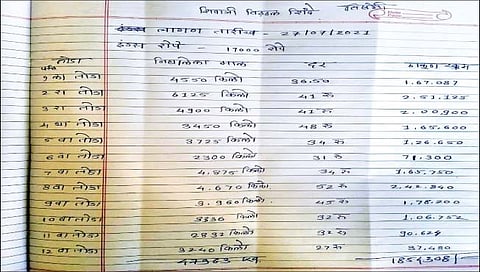 शिवाजी विठ्ठल शिंदे
लागण तारीख - 27/07/2021
रोपे - 17000 रोपे
तोडा निघालेला माल दर
1 ला तोडा 4550 किलो 36.50 1,67,087
2 रा तोडा 6125 किलो 41 रु 2,51,125
3 रा तोडा 4900 किलो 41 रु 2,00,900
4 था तोडा 3450 किलो 48 रु 1,65,600
5 वा तोडा 3725 किलो 34 रु 1,26,650
6 वा तोडा 2300 किलो 31 रु 71,300
7 वा तोडा 4.875 किलो 34 रु 1,65,750
8 वा तोडा 4.670 किलो 52 रु 2,42,840
9 वा तोडा 3.960 किलो 45 रु 1,78,200
10 वा तोडा 3336 किलो 32 रु 1,06,752
11 वा तोडा 2832 किलो 32 रु 90,624
12 वा तोडा 3240 किलो 27 रु 87,480
47963 kg 1854308/-